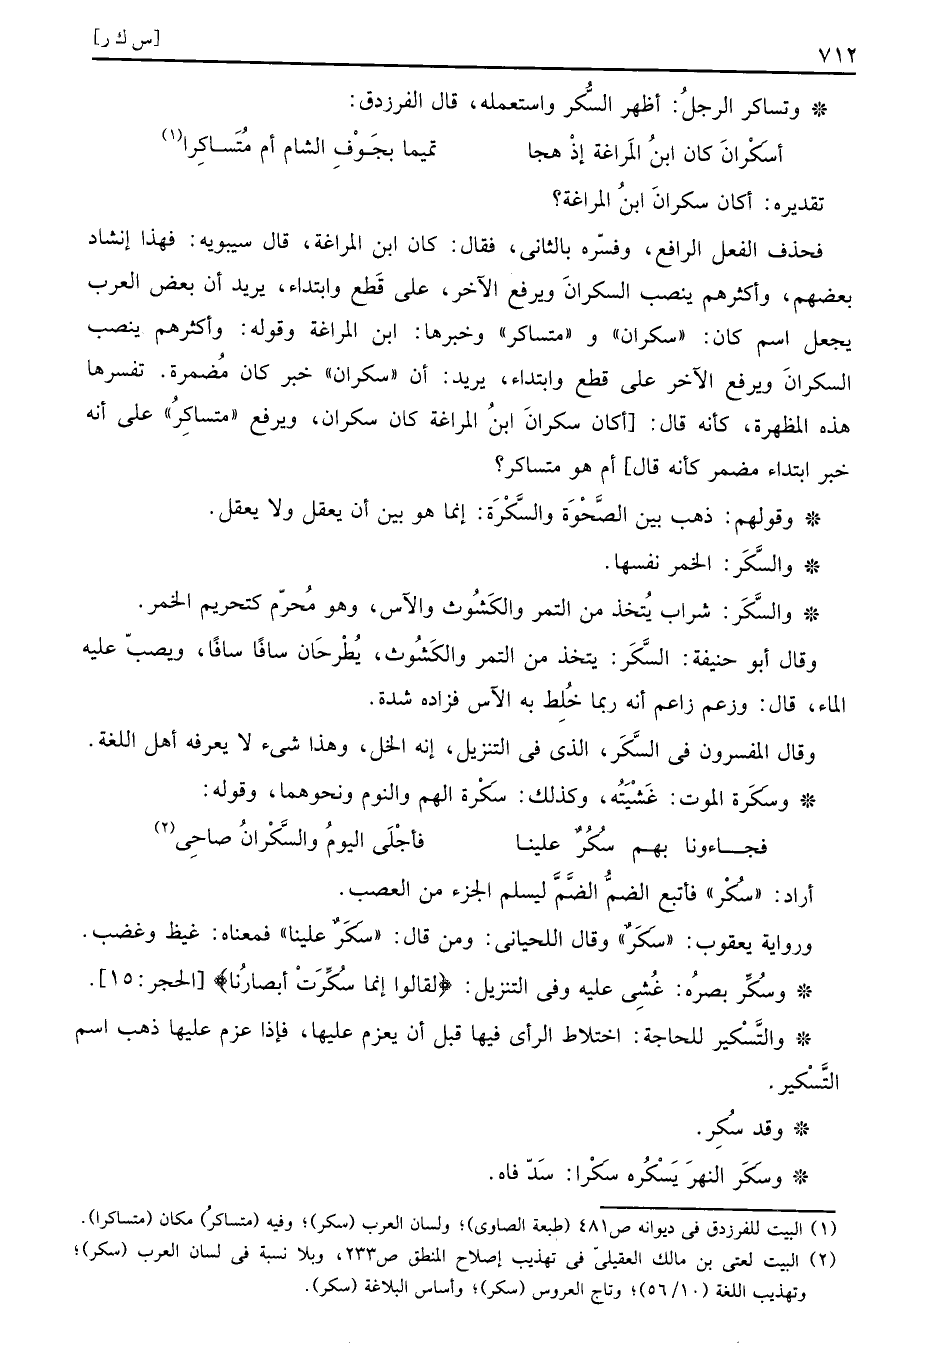 ٧١٢ [س ك ر]
* وتساكر الرجلُ: أظهر السُّكر واستعمله، قال الفرزدق:
أسكْرانَ كان ابنُ المَراغة إذْ هجا تميما بجَوْفِ الشام أم مُتَساكِرا(١)
تقديره: أكان سكرانَ ابنُ المراغة؟
فحذف الفعل الرافع، وفسّره بالثانى، فقال: كان ابن المراغة، قال سيبويه: فهذا إنشاد
بعضهم، وأكثرهم ينصب السكرانَ ويرفع الآخر، على قَطع وابتداء، يريد أن بعض العرب
يجعل اسم كان: «سكران» و «متساكر» وخبرها: ابن المراغة وقوله: وأكثرهم ينصب
السكرانَ ويرفع الآخر على قطع وابتداء، يريد: أن «سكران» خبر كان مُضمرة. تفسرها
هذه المظهرة، كأنه قال: [أكان سكرانَ ابنُ المراغة كان سكران، ويرفع «متساكرُ» على أنه
خبر ابتداء مضمر كأنه قال] أم هو متساكر؟
* وقولهم: ذهب بين الصَّحْوَة والسَّكْرَة: إنما هو بين أن يعقل ولا يعقل.
* والسَّكَر: الخمر نفسها.
* والسَّكَر: شراب يُتخذ من التمر والكَشُوث والآس، وهو مُحرّم كتحريم الخمر.
وقال أبو حنيفة: السَّكَر: يتخذ من التمر والكَشُوث، يُطْرحَان سافًا سافًا، ويصبّ عليه
الماء، قال: وزعم زاعم أنه ربما خُلِط به الآس فزاده شدة.
وقال المفسرون فى السَّكَر، الذى فى التنزيل، إنه الخل، وهذا شىء لا يعرفه أهل اللغة.
* وسكَرة الموت: غَشْيَتُه، وكذلك: سَكْرة الهم والنوم ونحوهما، وقوله:
فجـــاءونا بهـم سُكُرٌ علينـا فأجْلَى اليومُ والسَّكْرانُ صاحِى(٢)
أراد: «سُكْر» فأتبع الضمُّ الضَّمَّ ليسلم الجزء من العصب.
ورواية يعقوب: «سكَرٌ» وقال اللحيانى: ومن قال: «سكَرٌ علينا» فمعناه: غيظ وغضب.
* وسُكِّر بصرُه: غُشِى عليه وفى التنزيل: ﴿لقالوا إنما سكِّرَتْ أبصارُنا﴾ [الحجر:١٥].
* والتَّسْكير للحاجة: اختلاط الرأى فيها قبل أن يعزم عليها، فإذا عزم عليها ذهب اسم
التَّسْكير.
* وقد سُكِر.
* وسكَر النهرَ يَسْكُره سَكْرا: سَدّ فاه.
(١) البيت للفرزدق فى ديوانه ص٤٨١ (طبعة الصاوى)؛ ولسان العرب (سكر)؛ وفيه (متساكرُ) مكان (متساكرا).
(٢) البيت لعتى بن مالك العقيلىّ فى تهذيب إصلاح المنطق ص٢٣٣، وبلا نسبة فى لسان العرب (سكر)؛
وتهذيب اللغة (١٠/ ٥٦)؛ وتاج العروس (سكر)؛ وأساس البلاغة (سكر).